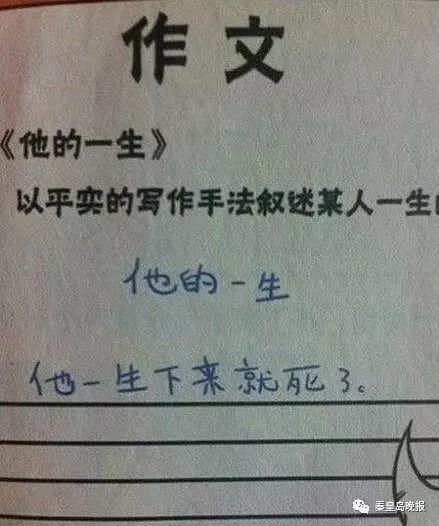 作文
《他的一生》
以平实的写作手法叙述某人一生
他的一生
他一生下来就死了。
秦皇岛晚报